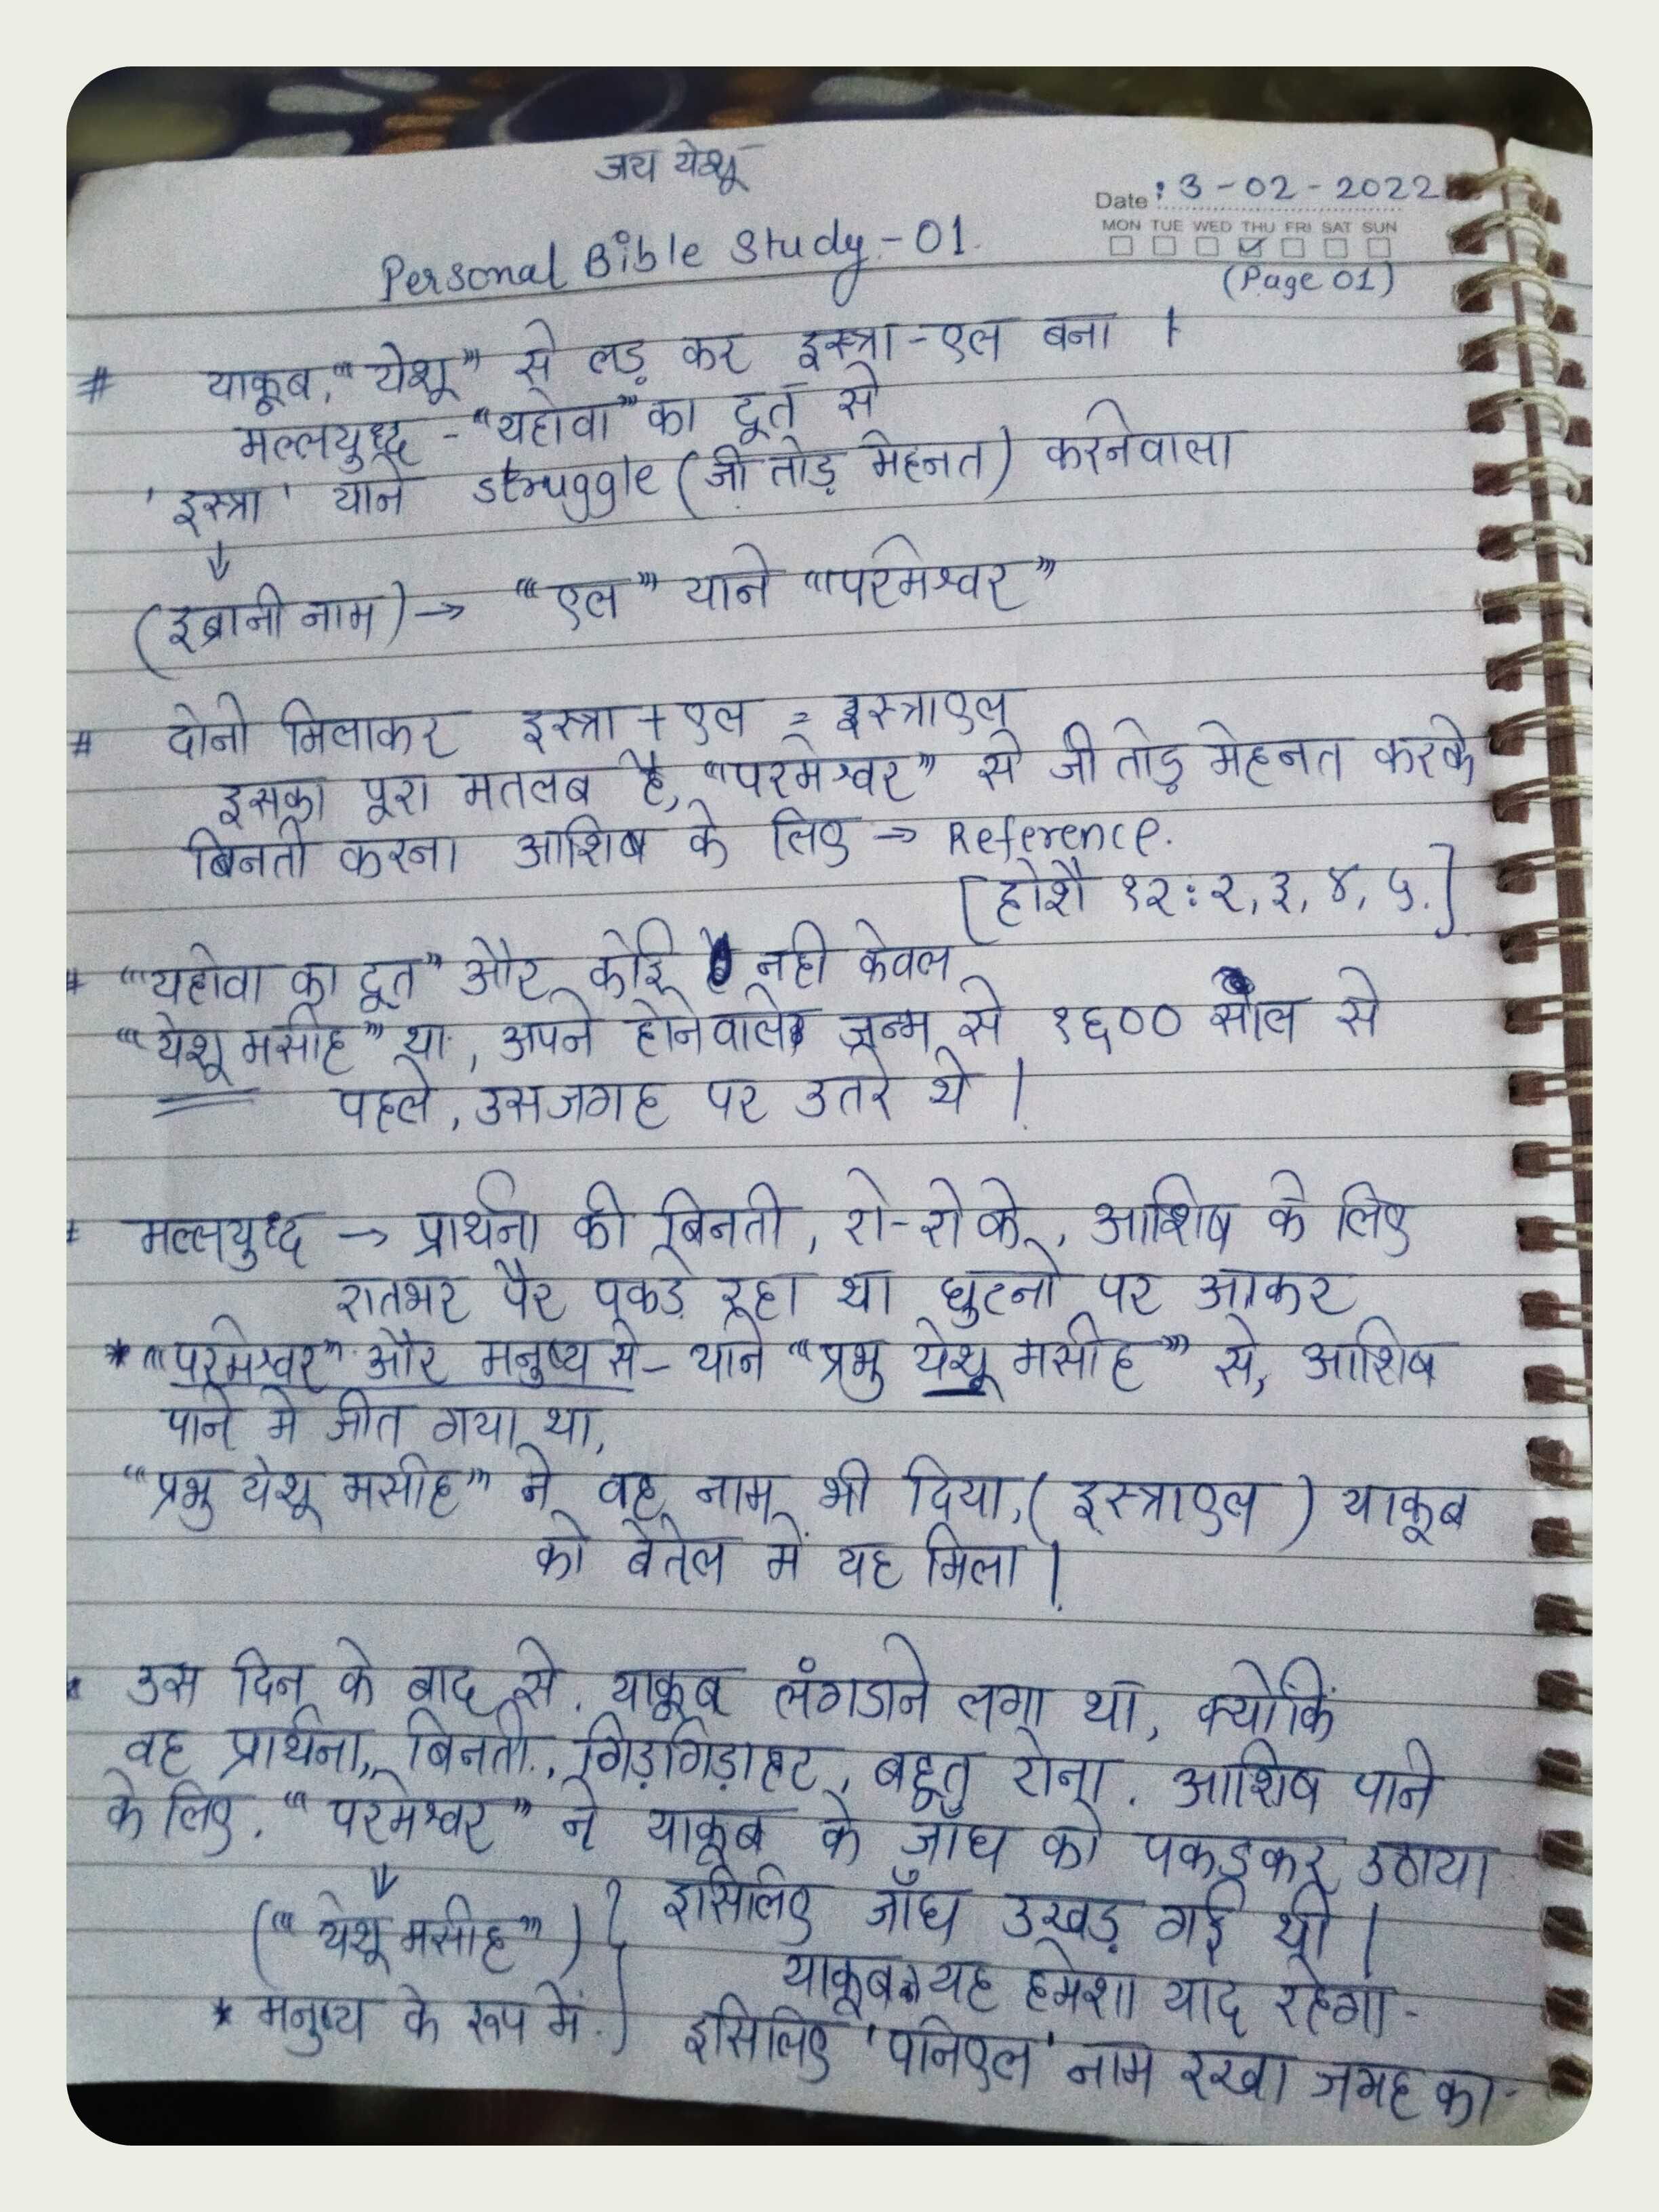 जय येशू
Date : 3 - 02 - 2022
MON TUE WED THU FRI SAT SUN
Personal Bible Study - 01.
(Page 01)
# याकूब, "येशू" से लड़ कर इस्त्रा - एल बना ।
मल्लयुद्ध - "यहोवा" का दूत से
'इस्त्रा' याने struggle (जी तोड़ मेहनत) करनेवाला
↓
(इब्रानी नाम) → "एल" याने "परमेश्वर"
# दोनो मिलाकर इस्त्रा + एल = इस्त्राएल
इसका पूरा मतलब है, "परमेश्वर" से जी तोड़ मेहनत करके
बिनती करना आशिष के लिए → Reference.
[होशै १२ : २, ३, ४, ५.]
# "यहोवा का दूत" और कोई नही केवल
"येशू मसीह" था, अपने होनेवाले जन्म से १६०० साल से
पहले, उसजगह पर उतरे थे ।
# मल्लयुद्ध → प्रार्थना की बिनती, रो-रो के, आशिष के लिए
रातभर पैर पकड़े रहा था घुटनो पर आकर
* "परमेश्वर" और मनुष्य से - याने "प्रभु येशू मसीह" से, आशिष
पाने मे जीत गया था,
"प्रभु येशू मसीह" ने वह नाम भी दिया, (इस्त्राएल) याकूब
को बेतेल में यह मिला ।
* उस दिन के बाद से, याकूब लंगडाने लगा था, क्योकिं
वह प्रार्थना, बिनती, गिड़गिड़ाहट, बहूत रोना, आशिष पाने
के लिए, "परमेश्वर" ने याकूब के जाँघ को पकड़कर उठाया
↓
("येशू मसीह") इसिलिए जाँघ उखड़ गई थी ।
याकूब को यह हमेशा याद रहेगा -
* मनुष्य के रूप में.
इसिलिए 'पनिएल' नाम रखा जगह का -